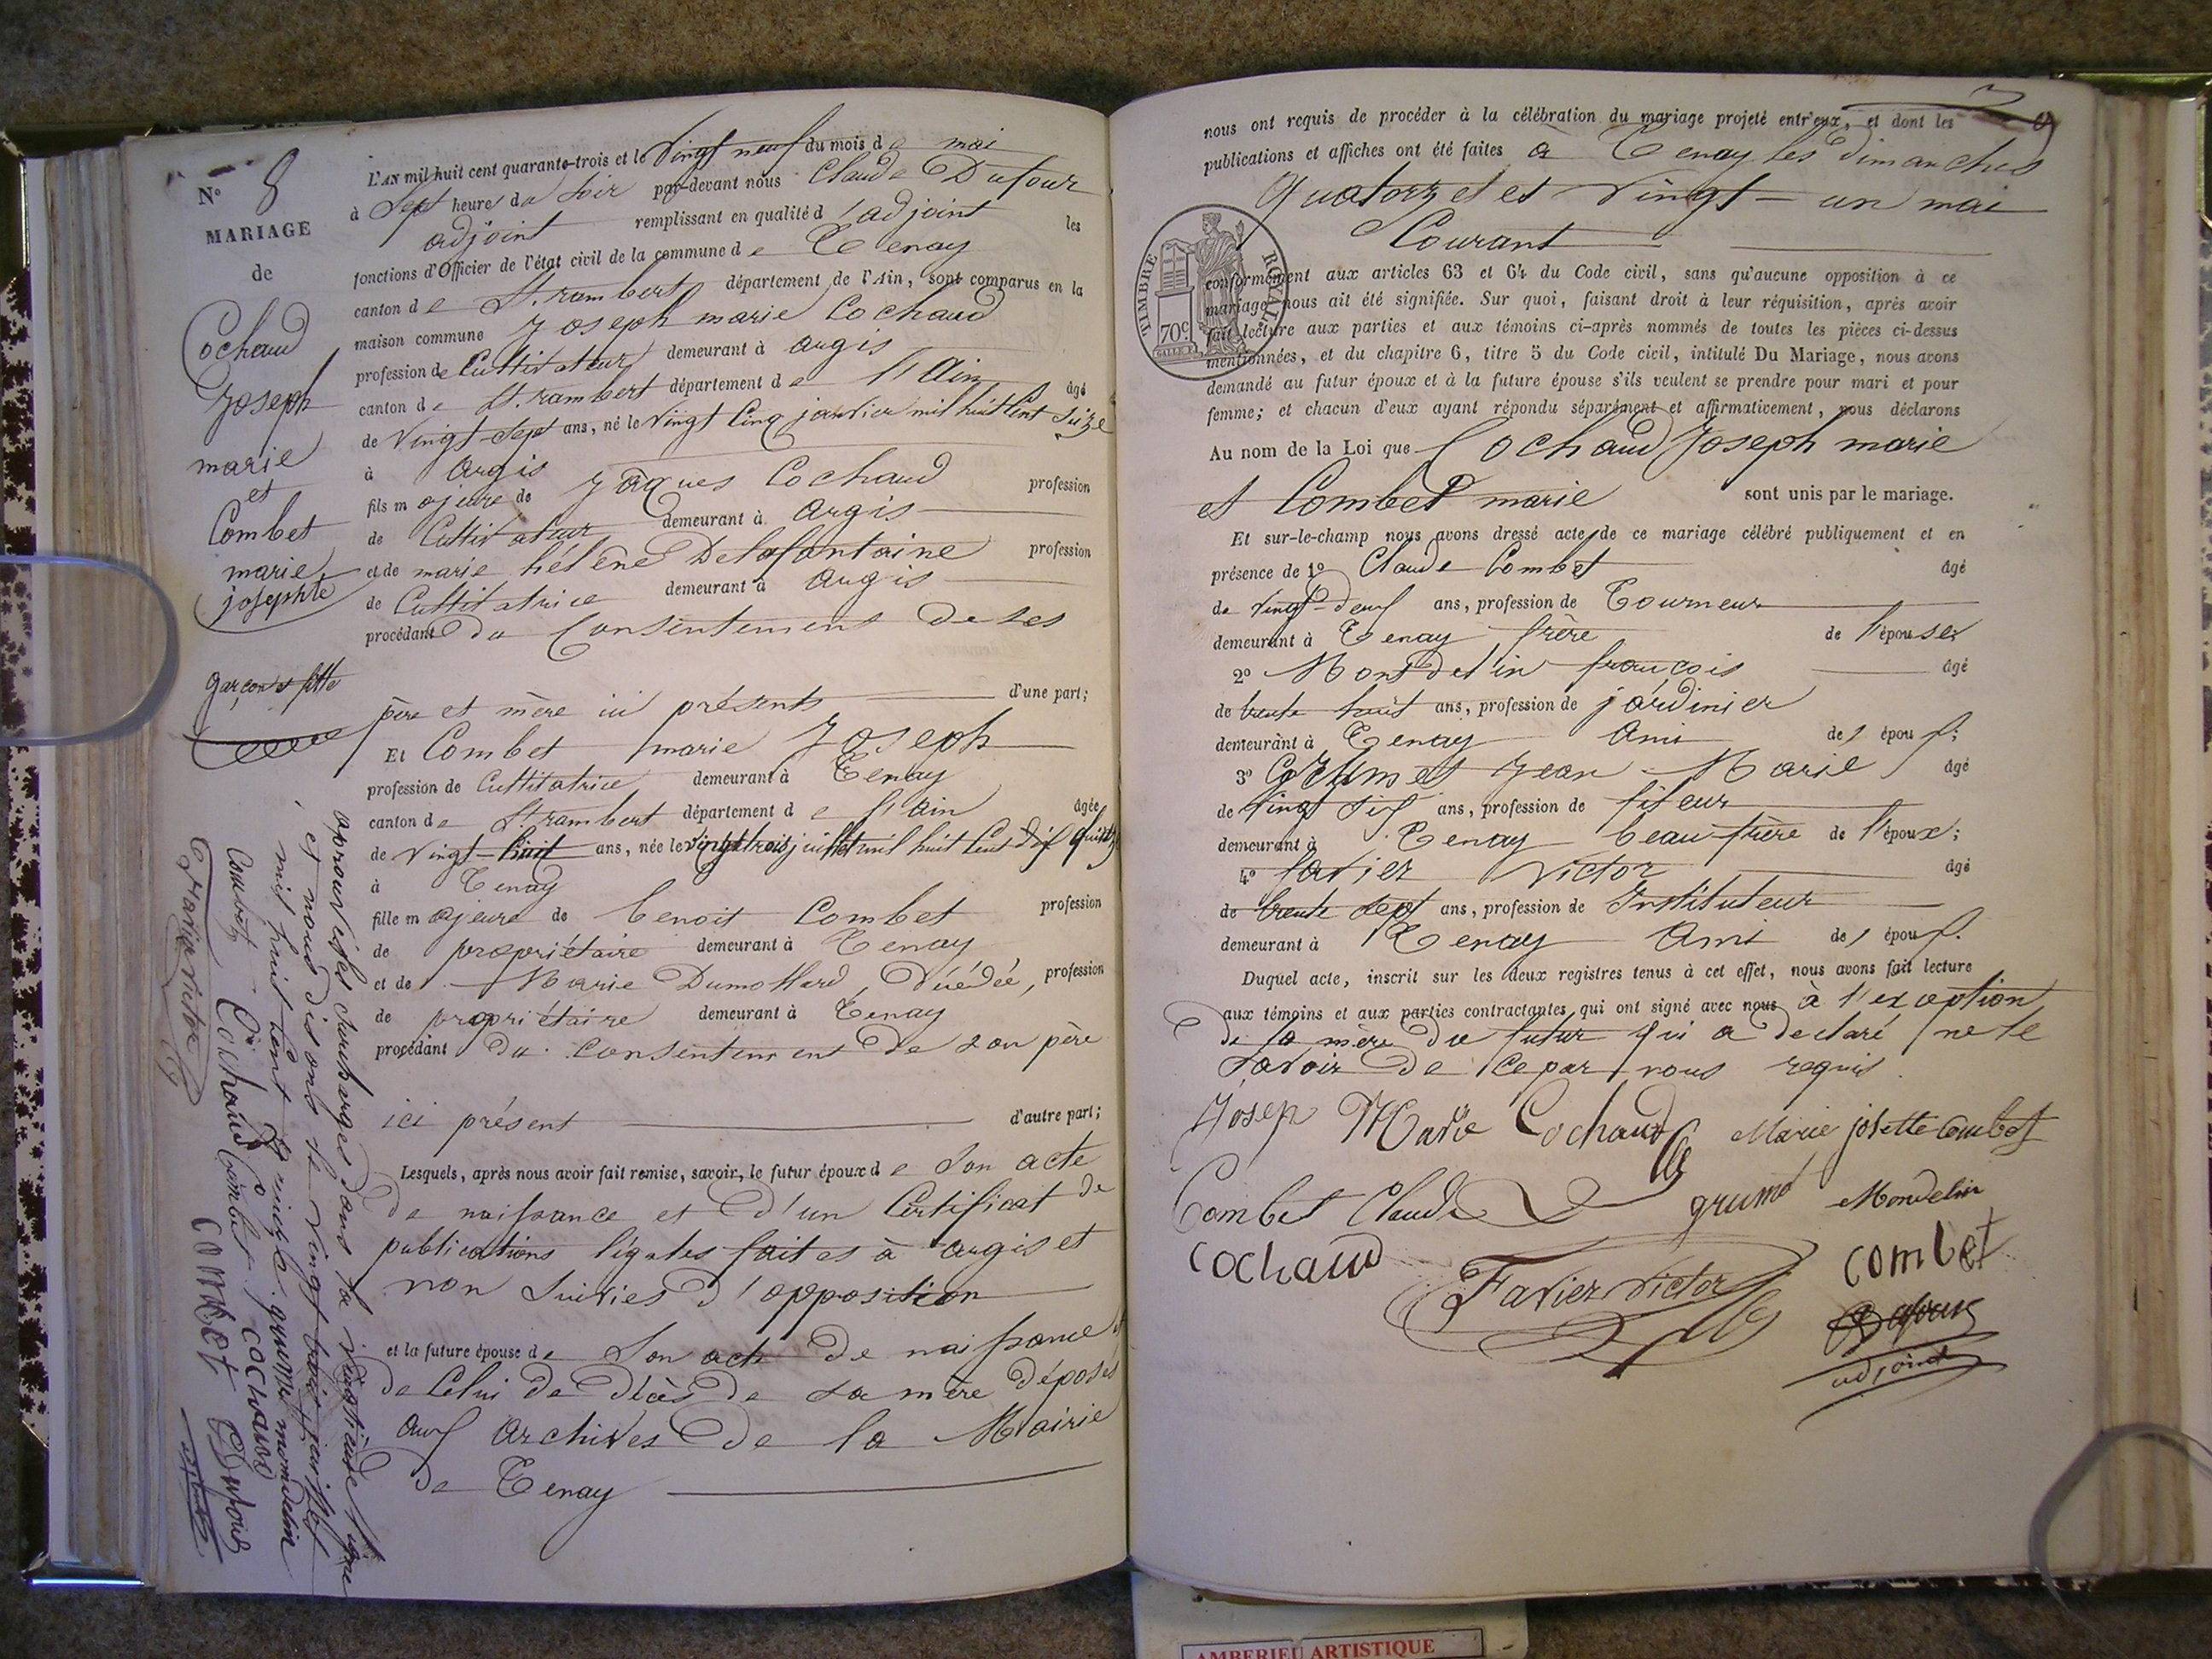 N° 8
MARIAGE
de
Cochaud
Joseph
marie
et
Combet
marie
josephte
garçon et fille
L'AN mil huit cent quarante-trois et le Vingt neuf du mois de mai
à Sept heures du Soir par-devant nous Claude Dufour
adjoint remplissant en qualité d'adjoint les
fonctions d'Officier de l'état civil de la commune de Tenay
canton de St. rambert département de l'Ain, sont comparus en la
maison commune Joseph marie Cochaud
profession de Cultivateur demeurant à argis
canton de St. rambert département de l'Ain âgé
de Vingt-Sept ans, né le Vingt Cinq janvier mil huit Cent Seize
à Argis
fils majeure de Jâques Cochaud profession
de Cultivateur demeurant à argis
et de marie hélène Delafontaine profession
de Cultivatrice demeurant à argis
procédant du Consentement de ses
père et mère ici présents d'une part;
Et Combet marie Joseph
profession de Cultivatrice demeurant à Tenay
canton de St rambert département de l'Ain âgée
de Vingt-huit ans, née le vingt trois juillet mil huit Cent
à Tenay
fille majeure de benoit Combet profession
de propriétaire demeurant à Tenay
et de Marie Dumollard, Décédée, profession
de propriétaire demeurant à Tenay
procédant du consentement de son père
ici présent d'autre part;
Lesquels, après nous avoir fait remise, savoir, le futur époux de Son acte
de naissance et d'un Certificat de
publications légales faites à argis et
non Suivies d'opposition
et la future épouse de Son acte de naissance et
de Celui de décès de sa mère déposés
aux archives de la Mairie
de Tenay
approuvé les surcharges dans la vingtième ligne
et nous disons le vingt trois juillet
mil huit cent grumet mondelin
Combet Cochaud Combet Cochaud
Favier victor Combet Dufour
adjoint
nous ont requis de procéder à la célébration du mariage projeté entr'eux, et dont les
publications et affiches ont été faites à Tenay les dimanches
quatorze et Vingt-un mai
Courant
TIMBRE ROYAL
70c
conformément aux articles 63 et 64 du Code civil, sans qu'aucune opposition à ce
mariage nous ait été signifiée. Sur quoi, faisant droit à leur réquisition, après avoir
fait lecture aux parties et aux témoins ci-après nommés de toutes les pièces ci-dessus
mentionnées, et du chapitre 6, titre 5 du Code civil, intitulé Du Mariage, nous avons
demandé au futur époux et à la future épouse s'ils veulent se prendre pour mari et pour
femme; et chacun d'eux ayant répondu séparément et affirmativement, nous déclarons
Au nom de la Loi que Cochaud Joseph marie
et Combet marie sont unis par le mariage.
Et sur-le-champ nous avons dressé acte de ce mariage célébré publiquement et en
présence de 1° Claude Combet âgé
de vingt-deux ans, profession de Tourneur
demeurant à Tenay frère de l'épouse
2° Mondelin françois âgé
de trente huit ans, profession de jardinier
demeurant à Tenay Ami des époux;
3° Grumet Jean-Marie âgé
de vingt six ans, profession de fileur
demeurant à Tenay beau-frère de l'époux;
4° favier victor âgé
de trente sept ans, profession de Instituteur
demeurant à Tenay Ami des époux.
Duquel acte, inscrit sur les deux registres tenus à cet effet, nous avons fait lecture
aux témoins et aux parties contractantes qui ont signé avec nous à l'exception
de la mère du futur qui a déclaré ne le
savoir de ce par nous requis
Josep Marie Cochaud Marie josette Combet
Combet Claude grumet Mondelin
cochaud Favier Victor combet
Dufour
adjoint
AMBERIEU ARTISTIQUE